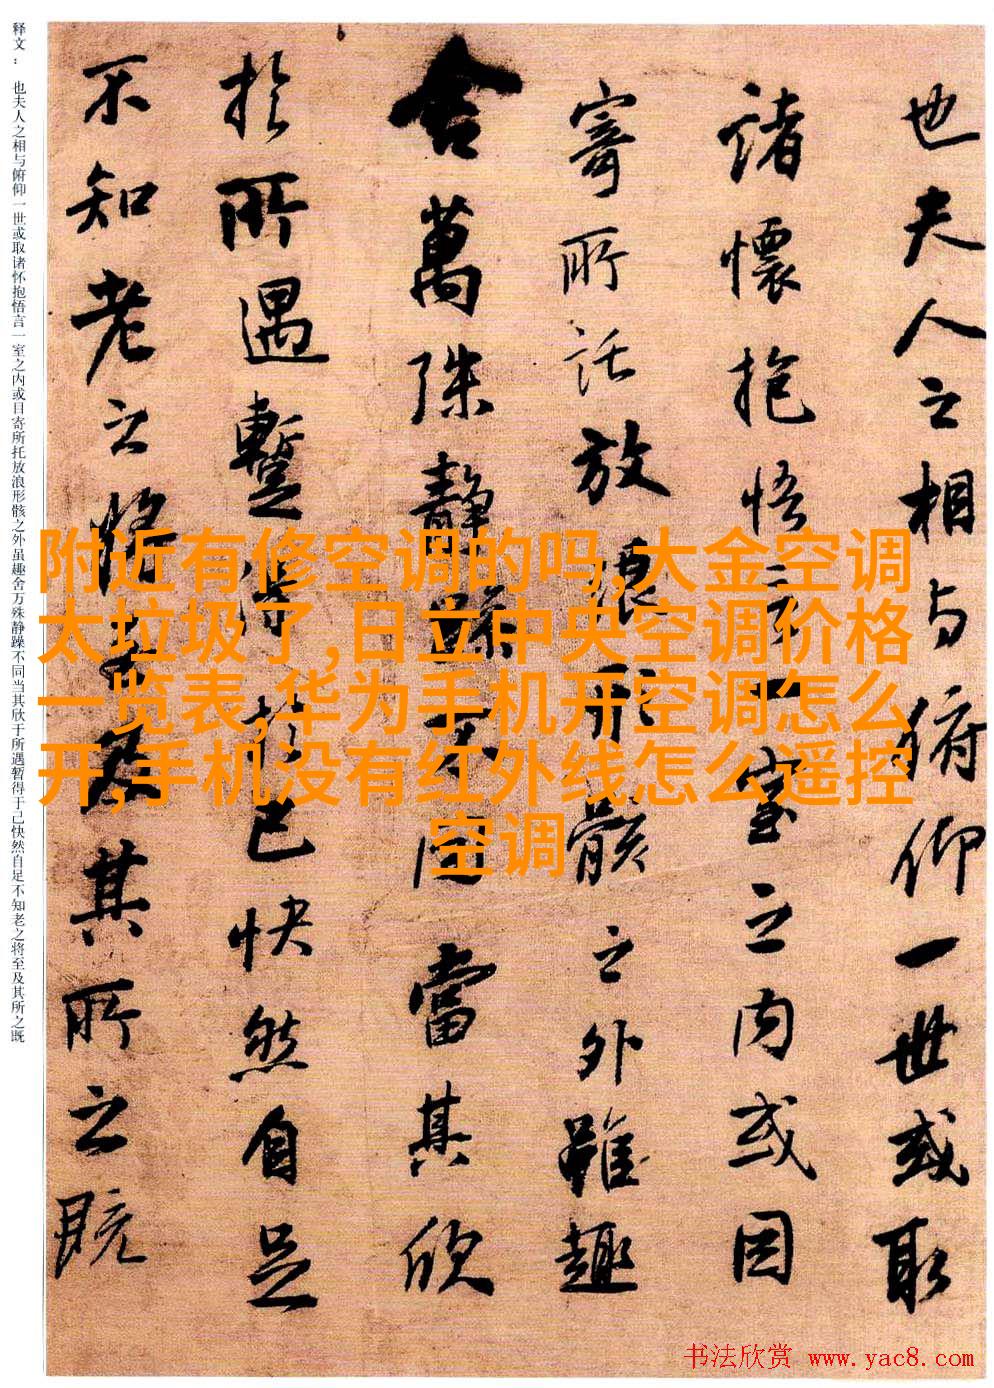 也夫人之相与俯仰一世或取
諸懷抱悟言一室之内或因
寄所託放浪形骸之外雖趣
舍萬殊靜躁不同當其欣
於所遇暫得於己快然自足
不知老之將至及其所之既
释文： 也夫人之相与俯仰一世或取诸怀抱悟言一室之内或目寄所托放浪形骸之外虽趣舍万殊静躁不同当其欣于所遇暂得于己快然自足不知老之将至及其所之既
附近有修空调的吗,大金空调
太垃圾了,日立中央空调价格
一览表,华为手机开空调怎么
开,手机没有红外线怎么遥控
空调
书法欣赏 www.yac8.com